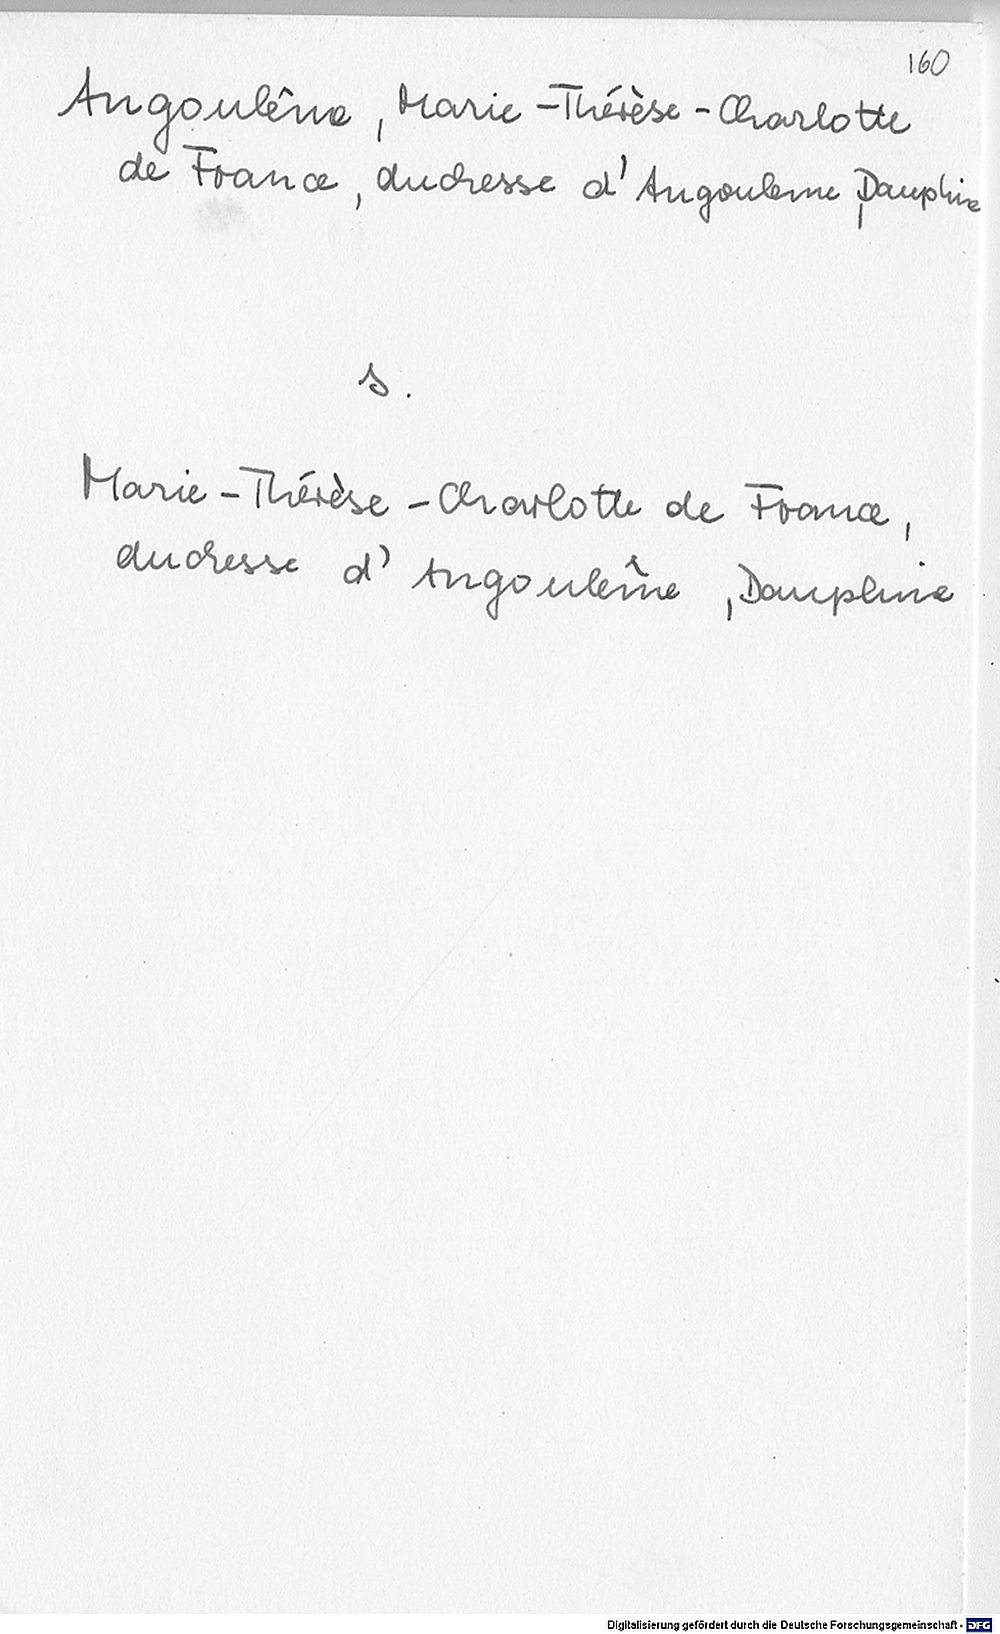 160
Angoulême, Marie-Thérèse-Charlotte
de France, duchesse d'Angouleme, Dauphine
s.
Marie-Thérèse-Charlotte de France,
duchesse d'Angoulême, Dauphine
Digitalisierung gefördert durch die Deutsche Forschungsgemeinschaft - DFG